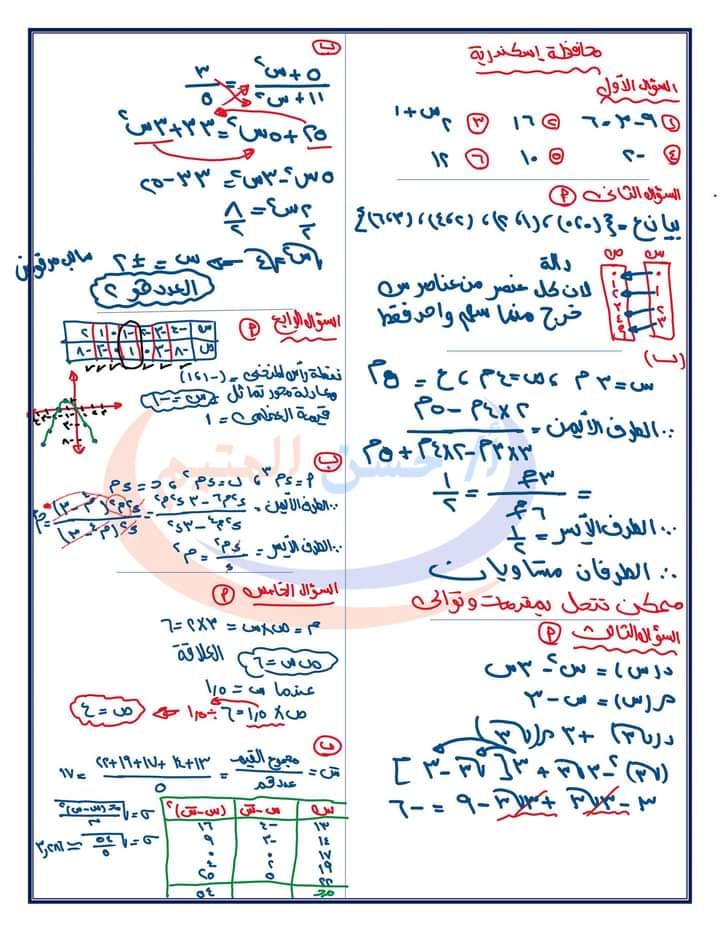 محافظة إسكندرية
السؤال الأول
① ٩ - ٣ = ٦ ② ١٦ ③ ٢س + ١
④ -٢ ⑤ ١٠ ⑥ ١٢
السؤال الثانى (P)
بيان ع = {(٠،٠)، (١،٢)، (٢،٤)، (٣،٦)}
س ص
دالة
لان كل عنصر من عناصر س
خرج منها سهم واحد فقط
(ب)
س = ٣م، ص = ٤م، ع = ٥م
∴ الطرف الأيمن = (٢×٤م - ٥م) / (٣×٣م - ٢×٤م + ٥م)
= ٣م / ٦م = ١/٢
∴ الطرف الأيسر = ١/٢
∴ الطرفان متساويان
ممكن تتحل بمقدمات وتوالى
السؤال الثالث (P)
د(س) = س² - ٣س
ر(س) = س - ٣
د(√٣) + ٣ ر(√٣)
(√٣)² - ٣√٣ + ٣[√٣ - ٣]
٣ - ٣√٣ + ٣√٣ - ٩ = -٦
ب
(٥ + س²) / (١١ + س²) = ٣/٥
٢٥ + ٥س² = ٣٣ + ٣س²
٥س² - ٣س² = ٣٣ - ٢٥
٢س²/٢ = ٨/٢
√س² = √٤ ⇐ س = ±٢ سالب مرفوض
العدد هو ٢
السؤال الرابع (P)
س -٤ -٣ -٢ -١ ٠ ١ ٢
ص -٨ -٣ ٠ ١ ٠ -٣ -٨
نقطة رأس المنحنى = (-١،١)
معادلة محور تماثل س = -١
قيمة العظمى = ١
ب
الطرف الأيمن
∴ الطرف الأيسر
السؤال الخامس (P)
م = س×ص = ٣×٢ = ٦
العلاقة
ص س = ٦
عندما س = ١,٥
ص × ١,٥ = ٦ ÷ ١,٥ ⇐ ص = ٤
ب
س̄ = مجموع القيم / عددهم = (١٣+١٤+١٧+١٩+٢٢) / ٥ = ١٧
س س-س̄ (س-س̄)²
١٣ -٤ ١٦
١٤ -٣ ٩
١٧ ٠ ٠
١٩ ٢ ٤
٢٢ ٥ ٢٥
٥٤
σ = √(مجـ(س-س̄)² / ن)
σ = √(٥٤/٥) ≃ ٣,٢٨٦
أ/ حسن المتيم